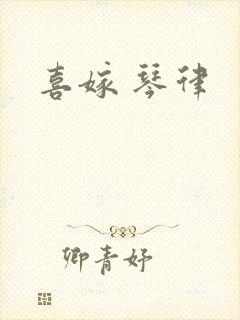 喜嫁琴律
卿青妤